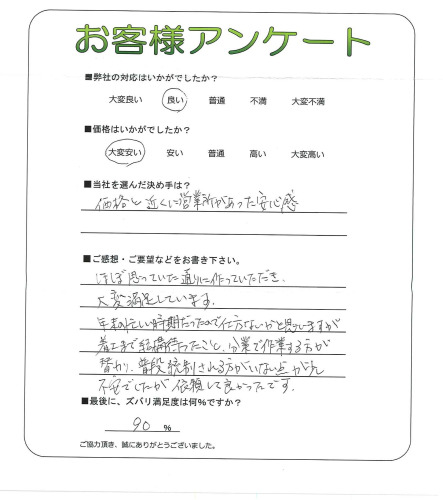 お客様アンケート
■弊社の対応はいかがでしたか？
大変良い 良い 普通 不満 大変不満
■価格はいかがでしたか？
大変安い 安い 普通 高い 大変高い
■当社を選んだ決め手は？
価格と近くに営業所があった安心感
■ご感想・ご要望などをお書き下さい。
ほぼ思っていた通りに作っていただき、
大変満足しています。
年末の忙しい時期だったので仕方ないかと思いますが
着工まで結構待ったこと、分業で作業する方が
替わり、普段統制される方がいない点が
不安でしたが依頼して良かったです。
■最後に、ズバリ満足度は何%ですか？
90 %
ご協力頂き、誠にありがとうございました。